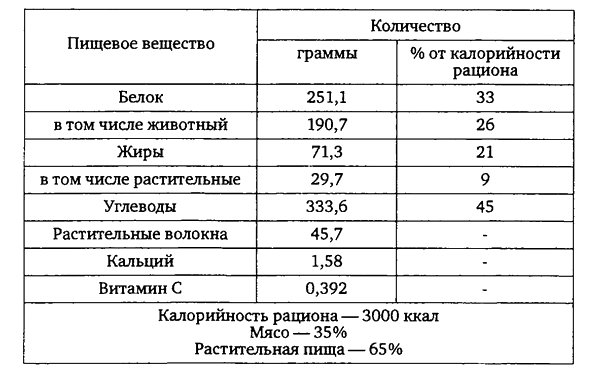 Пищевое вещество
Количество
граммы
% от калорийности
рациона
Белок 251,1 33
в том числе животный 190,7 26
Жиры 71,3 21
в том числе растительные 29,7 9
Углеводы 333,6 45
Растительные волокна 45,7 -
Кальций 1,58 -
Витамин С 0,392 -
Калорийность рациона — 3000 ккал
Мясо — 35%
Растительная пища — 65%